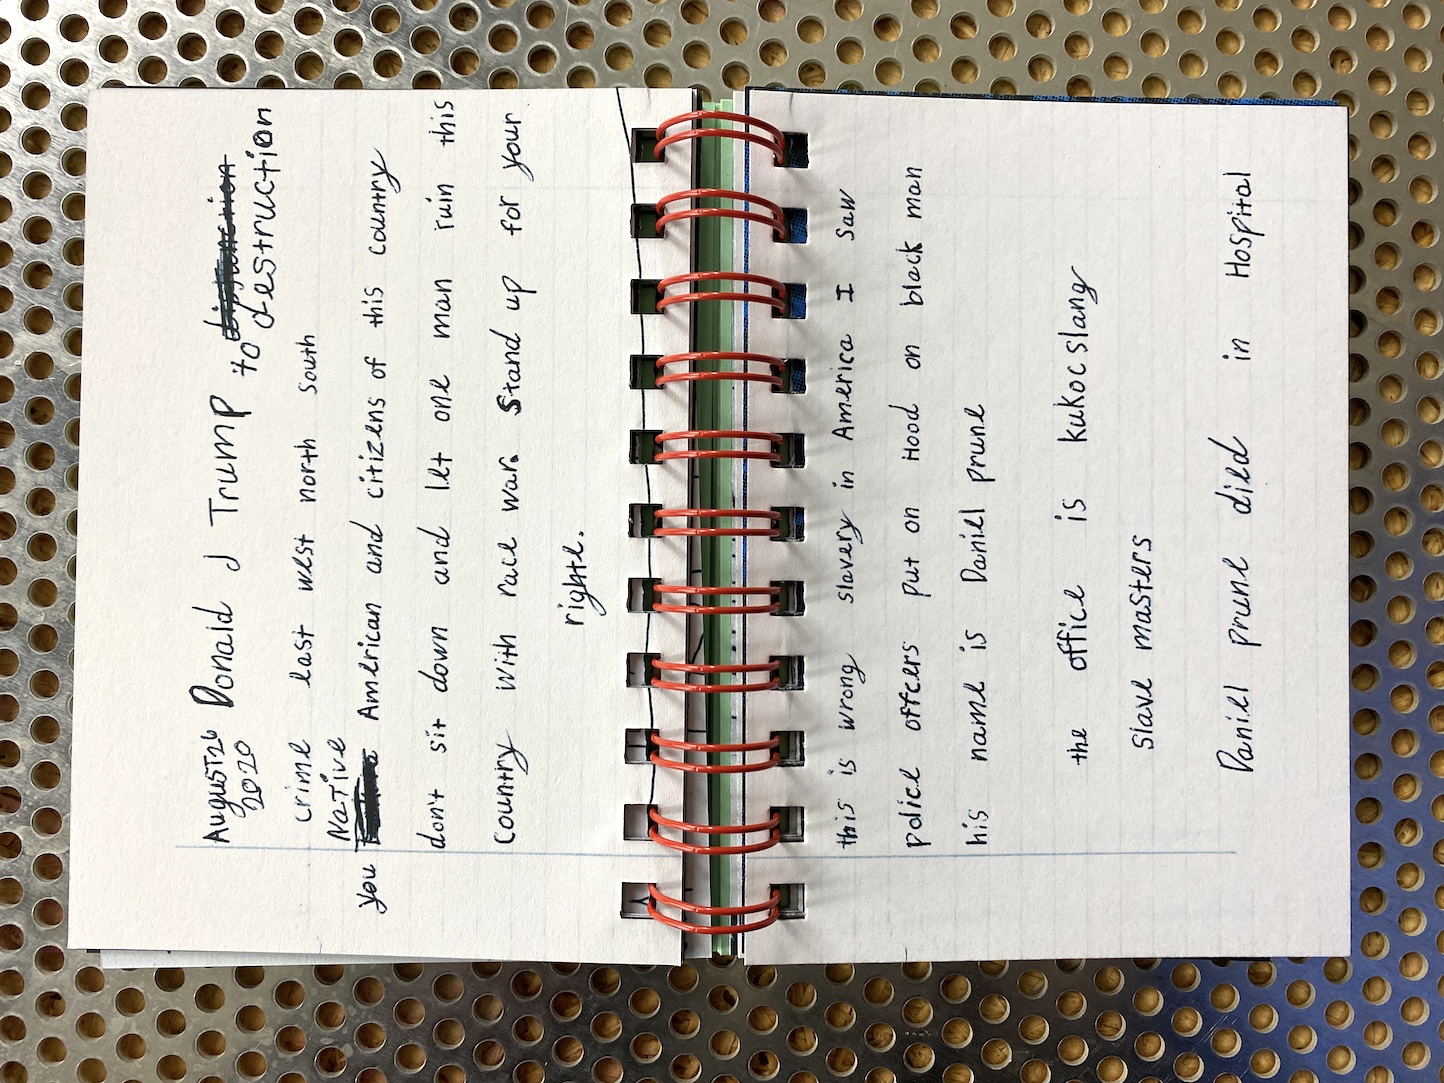 August 26 Donald J Trump to destruction
2020
crime east west north south
Native
you American and citizens of this country
don't sit down and let one man ruin this
country with race war. Stand up for your
righte.
this is wrong slavery in America I saw
police offcers put on Hood on black man
his name is Daniel prune
the office is kukocslang
slave masters
Daniel prune died in Hospital